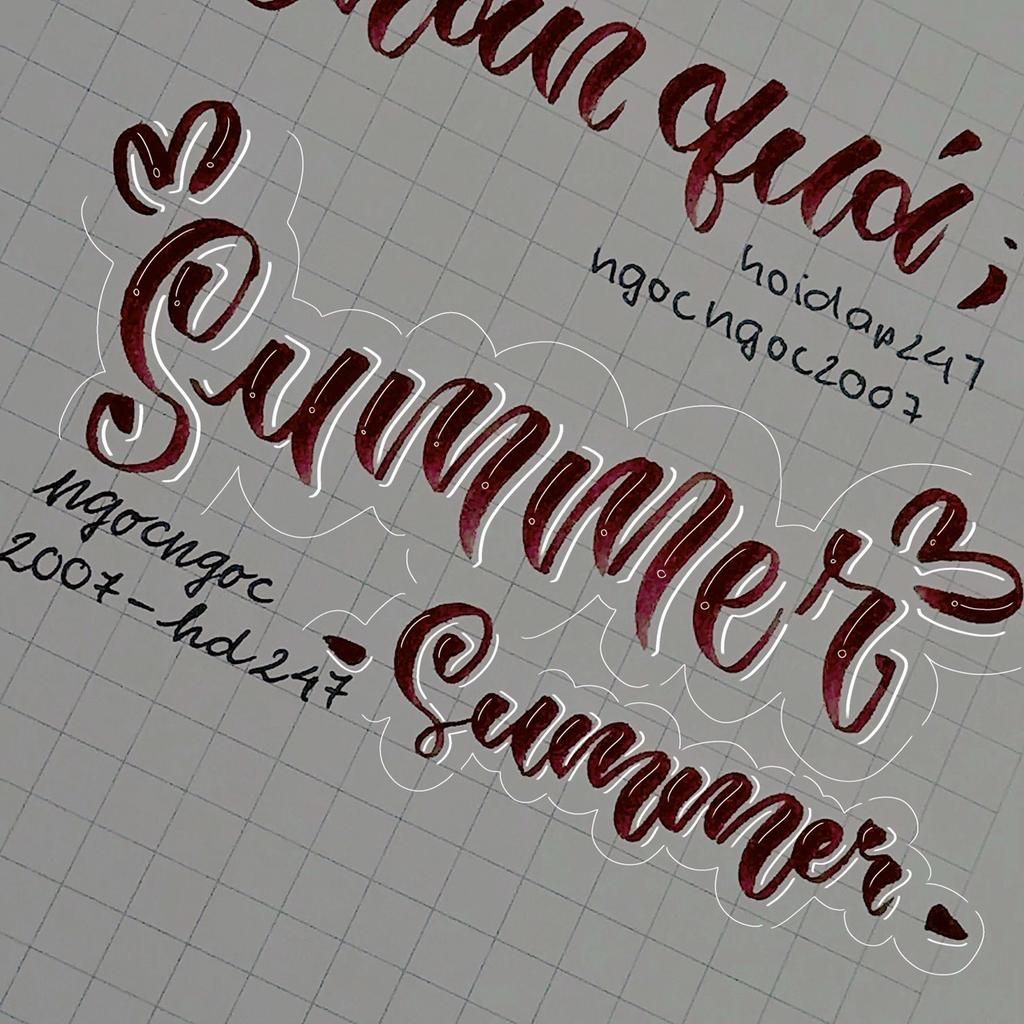 hoidap247
ngocngoc2007
Summer
ngocngoc
2007-hd247
- Summer -